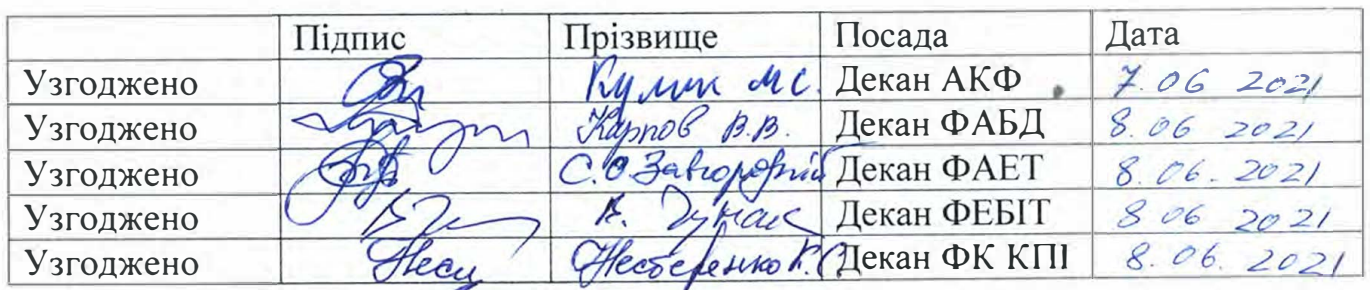 Підпис Прізвище Посада Дата
Узгоджено Кулик М.С. Декан АКФ 7.06 2021
Узгоджено Карпов В.В. Декан ФАБД 8.06 2021
Узгоджено С.О.Завгородній Декан ФАЕТ 8.06.2021
Узгоджено Декан ФЕБІТ 8 06 2021
Узгоджено Нестеренко К.С. Декан ФК КПІ 8.06.2021